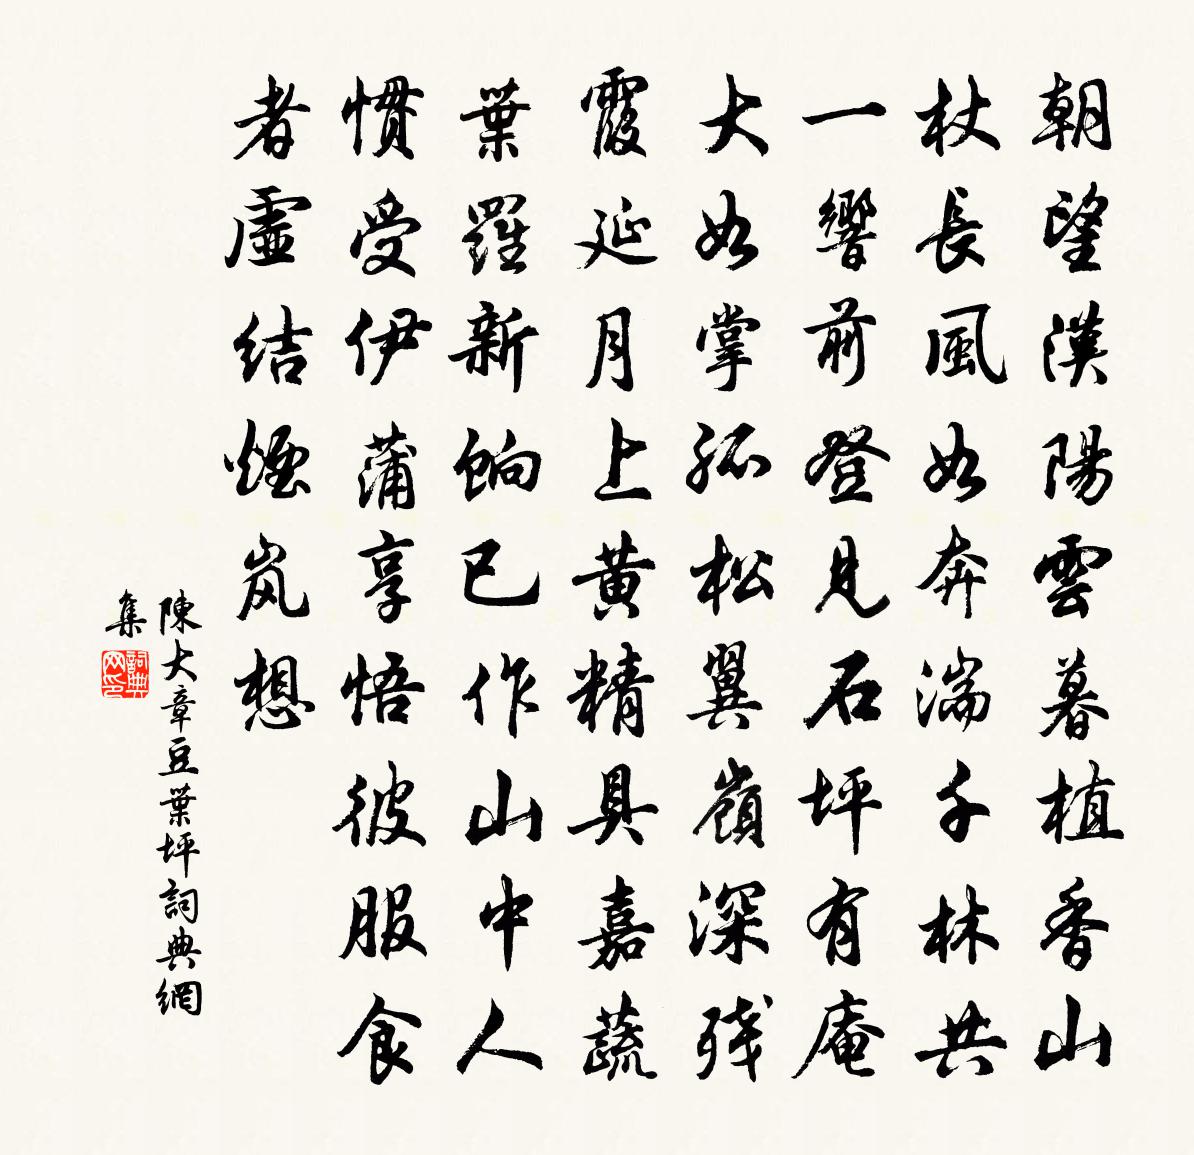 朝望漢陽雲暮植香山
杖長風如奔湍千林共
一響前登見石坪有庵
大如掌孤松翼嶺深殘
霞延月上黄精具嘉蔬
葉羅新餉已作山中人
慣受伊蒲享悟彼服食
者虛结煙岚想
陳大章豆葉坪詞典網
集
詞典网印